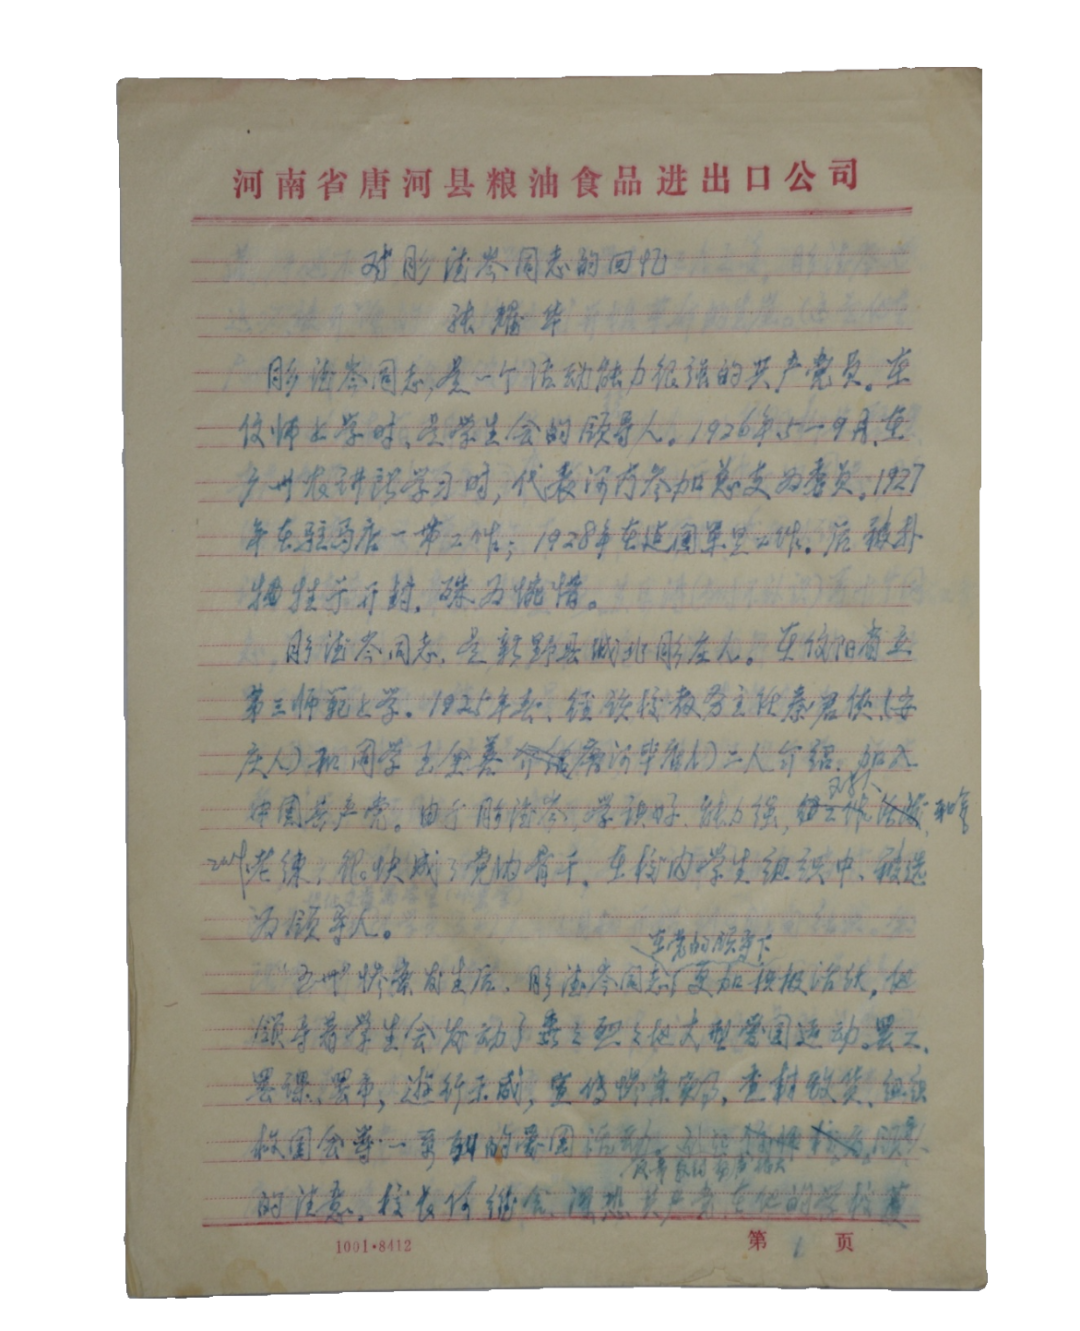 河南省唐河县粮油食品进出口公司
对彭澹岑同志的回忆
张耀华
彭澹岑同志,是一个活动能力很强的共产党员。在
师上学时,是学生会的领导人。1926年5—9月,在
广州农讲所学习时,代表河南参加总支为委员。1927
年在驻马店一带工作;1928年在 军里工作。后被捕
牺牲于开封,殊为惋惜。
彭澹岑同志,是新野县城北彭庄人。在 阳省立
第三师范上学。1925年春,经该校教务主任秦君侠(
庄人)和同学王金善 唐河毕店人)二人介绍,加入
中国共产党。由于彭澹岑,学识好,能力强,
老练,很快成了党内骨干,在校内学生组织中,被选
为领导人。
在党的领导下
"五卅"惨案发生后,彭澹岑同志更加积极活跃,他
领导着学生会发动了轰轰烈烈的大型爱国运动。罢工、
罢课、罢市,游行示威,宣传惨案 ,查封 货,组织
救国会等一系列的爱国活动。
的注意。校长何 ,
共产 在他的学校
1001·8412
第 1 页